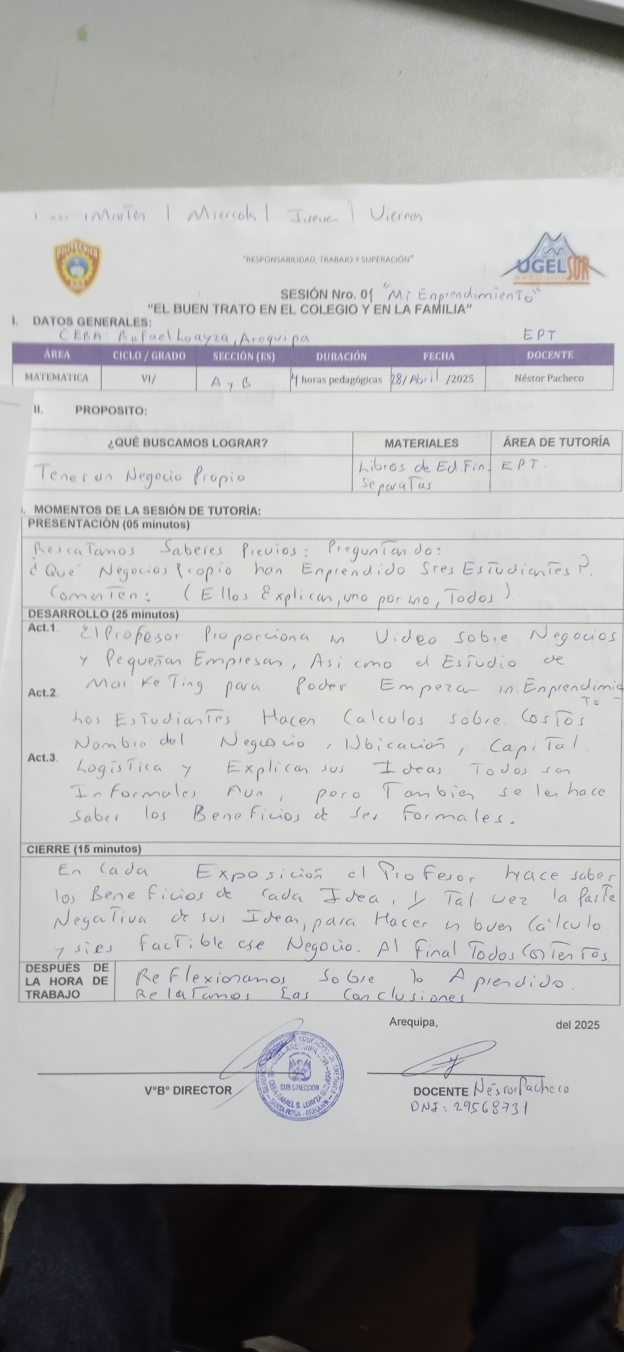 Martes | Miercoles | Jueves | Viernes
POLITECNICO
"RESPONSABILIDAD, TRABAJO Y SUPERACIÓN"
UGEL SUR
SESIÓN Nro. 01 "Mi Enprendimiento"
"EL BUEN TRATO EN EL COLEGIO Y EN LA FAMILIA"
I. DATOS GENERALES:
CEBA: Rafael Loayza, Arequipa EPT
ÁREA CICLO / GRADO SECCIÓN (ES) DURACIÓN FECHA DOCENTE
MATEMATICA VI/ A y B 4 horas pedagógicas 28/Abril /2025 Néstor Pacheco
II. PROPOSITO:
¿QUÉ BUSCAMOS LOGRAR? MATERIALES ÁREA DE TUTORÍA
Tener un Negocio Propio Libros de Ed Fin. EPT.
Separatas
. MOMENTOS DE LA SESIÓN DE TUTORÍA:
PRESENTACIÓN (05 minutos)
Rescatamos Saberes Previos: Preguntando:
¿Qué Negocios Propio han Enprendido Sres Estudiantes?.
Comenten: (Ellos Explican, uno por uno, Todos)
DESARROLLO (25 minutos)
Act.1. El Profesor Proporciona un Video Sobre Negocios
y Pequeñas Empresas, Asi como el Estudio de
Act.2. Marketing para Poder Empezar un Enprendimiento
Los Estudiantes Hacen Calculos sobre Costos
Nombre del Negocio, Ubicación, Capital
Act.3. Logística y Explican sus Ideas. Todos son
Informales Aun, pero Tambien se les hace
Saber los Beneficios de ser Formales.
CIERRE (15 minutos)
En Cada Exposición el Profesor hace saber
los Beneficios de cada Idea, y Tal vez la Parte
Negativa de sus Ideas, para Hacer un buen Cálculo
y si es factible ese Negocio. Al Final Todos Contentos
DESPUÉS DE LA HORA DE TRABAJO
Reflexionamos Sobre lo Aprendido.
Relatamos Las Conclusiones
Arequipa, del 2025
V°B° DIRECTOR
SUB DIRECCIÓN
DOCENTE Néstor Pacheco
DNI: 29568731